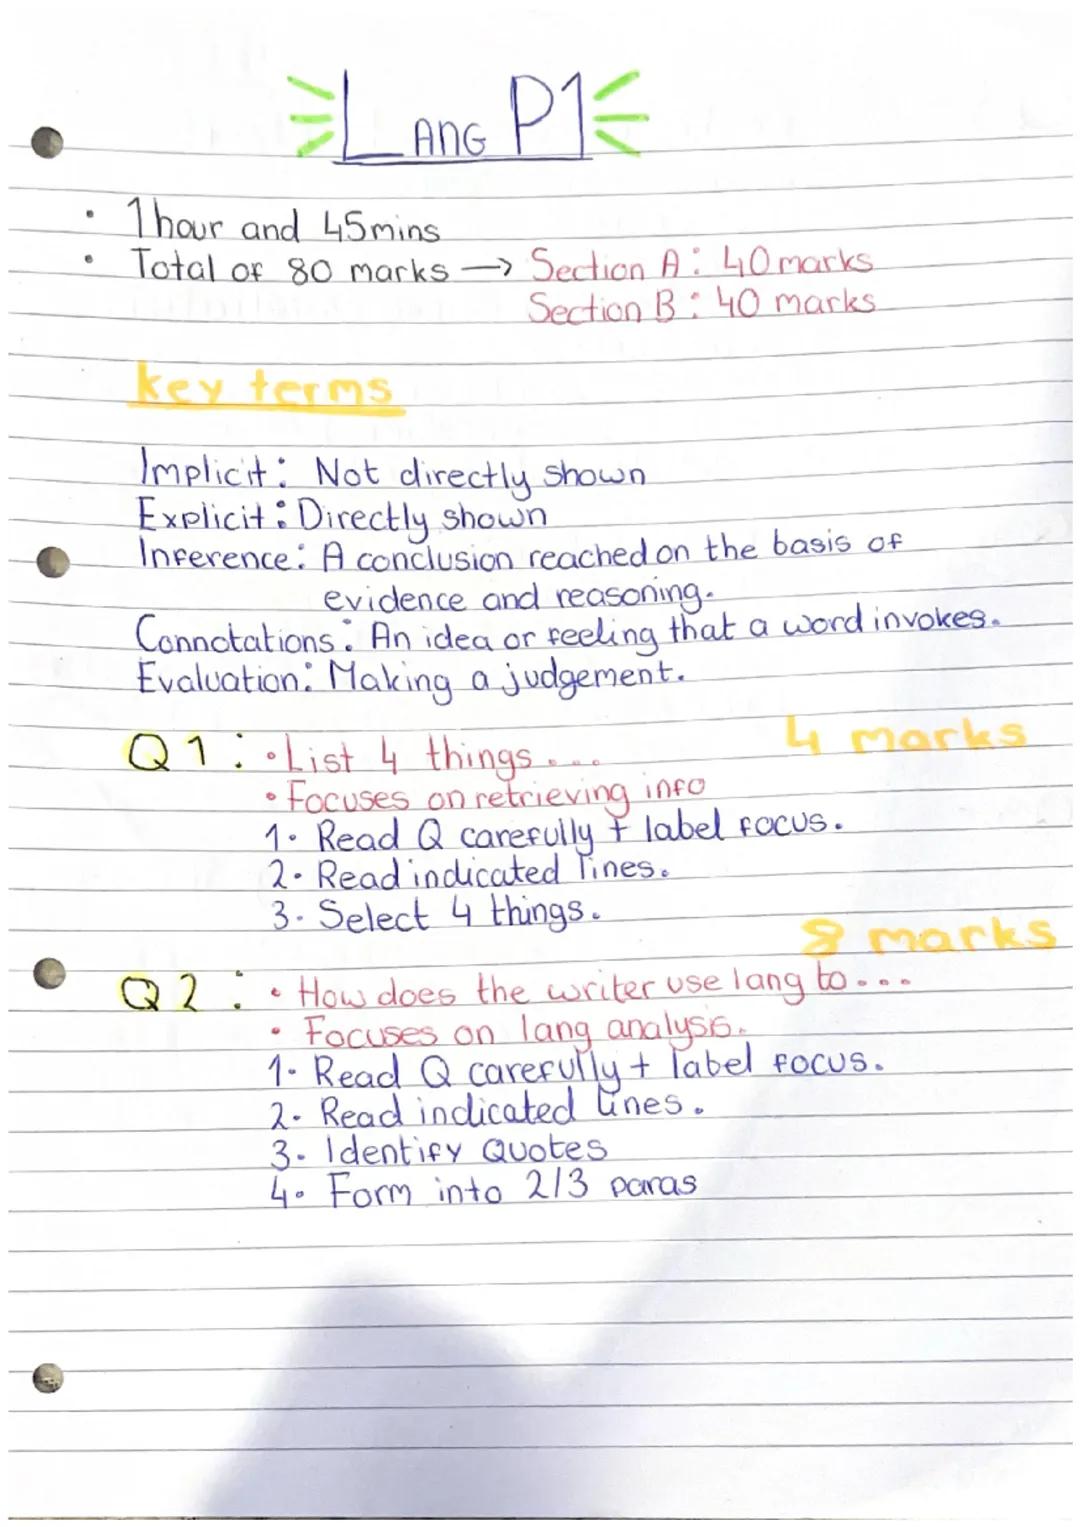 LANG P1
• 1 hour and 45mins
• Total of 80 marks → Section A: 40 marks
Section B: 40 marks
key terms
Implicit: Not directly shown
Explicit: Directly shown
Inference: A conclusion reached on the basis of
evidence and reasoning.
Connotations: An idea or feeling that a word invokes.
Evaluation: Making a judgement.
4 marks
Q1: • List 4 things...
• Focuses on retrieving info
1. Read Q carefully + label focus.
2. Read indicated lines.
3. Select 4 things.
8 marks
Q2: • How does the writer use lang to...
• Focuses on lang analysis.
1. Read Q carefully + label focus.
2. Read indicated lines.
3. Identify Quotes
4. Form into 2/3 paras